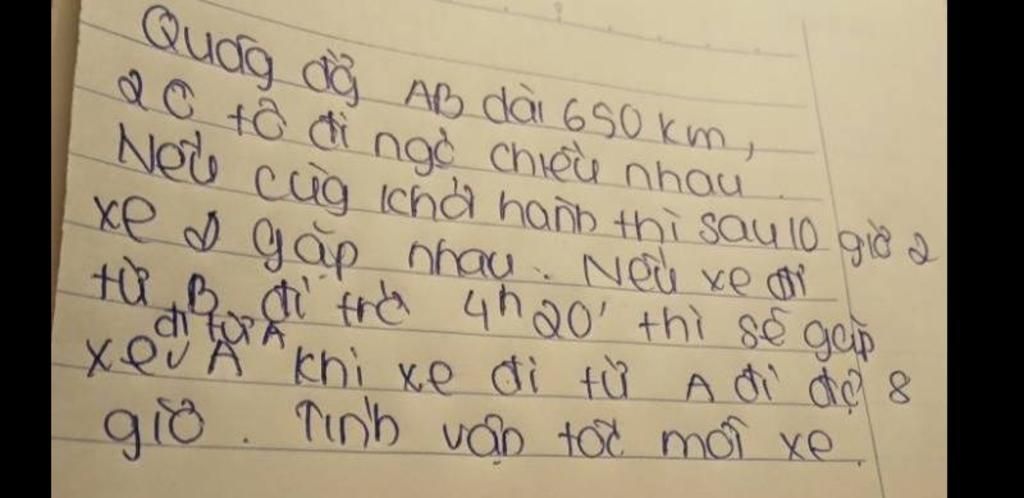 Quãg đg̉ AB dài 650 km,
2 ô tô đi ngc̀ chiều nhau.
Nếu cùg khởi hành thì sau 10 giờ 2
xe gặp nhau. Nếu xe đi
từ B đi trc̀ 4h20' thì sẽ gặp
đi từ A
xe A khi xe đi từ A đi đc̣ 8
giờ. Tính vận tốc mỗi xe.